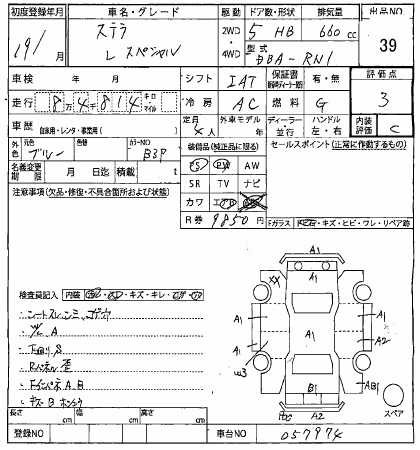 初度登録年月 車名・グレード 駆動 ドア数・形状 排気量 出品NO
19/ 月 ステラ L スペシャル 2WD ・ 4WD 5 HB 660 cc 39
型式 DBA-RN1
車検 年 月 シフト IAT 保証書 有・無 評価点
走行 8万4千814 キロ マイル 冷房 AC 燃料 G 3
車歴 自家用・レンタ・事業用( ) 定員 4人 外車モデル 年 ディーラー・並行 ハンドル 左・右 内装評価 C
外色 元色 ブルー 色替 カラーNO B3P 装備品(純正品に限る) セールスポイント(正常に作動するもの)
名義変更期限 月 日迄 積載量 t PS PW AW
注意事項(欠品・修復・不具合箇所および状態) SR TV ナビ
カワ エアB
R券 9850 円 Fガラス キズ・ヒビ・ワレ・リペア跡
検査員記入 内装
シートスレ シミ コゲ穴
A
S
Rパネル 歪
Fインパネ A.B
A1
XX
A1
A1 A1 A1
A1 A2
B1 AB1
A2
スペア
長さ cm 幅 cm 高さ cm
登録NO 車台NO 057974